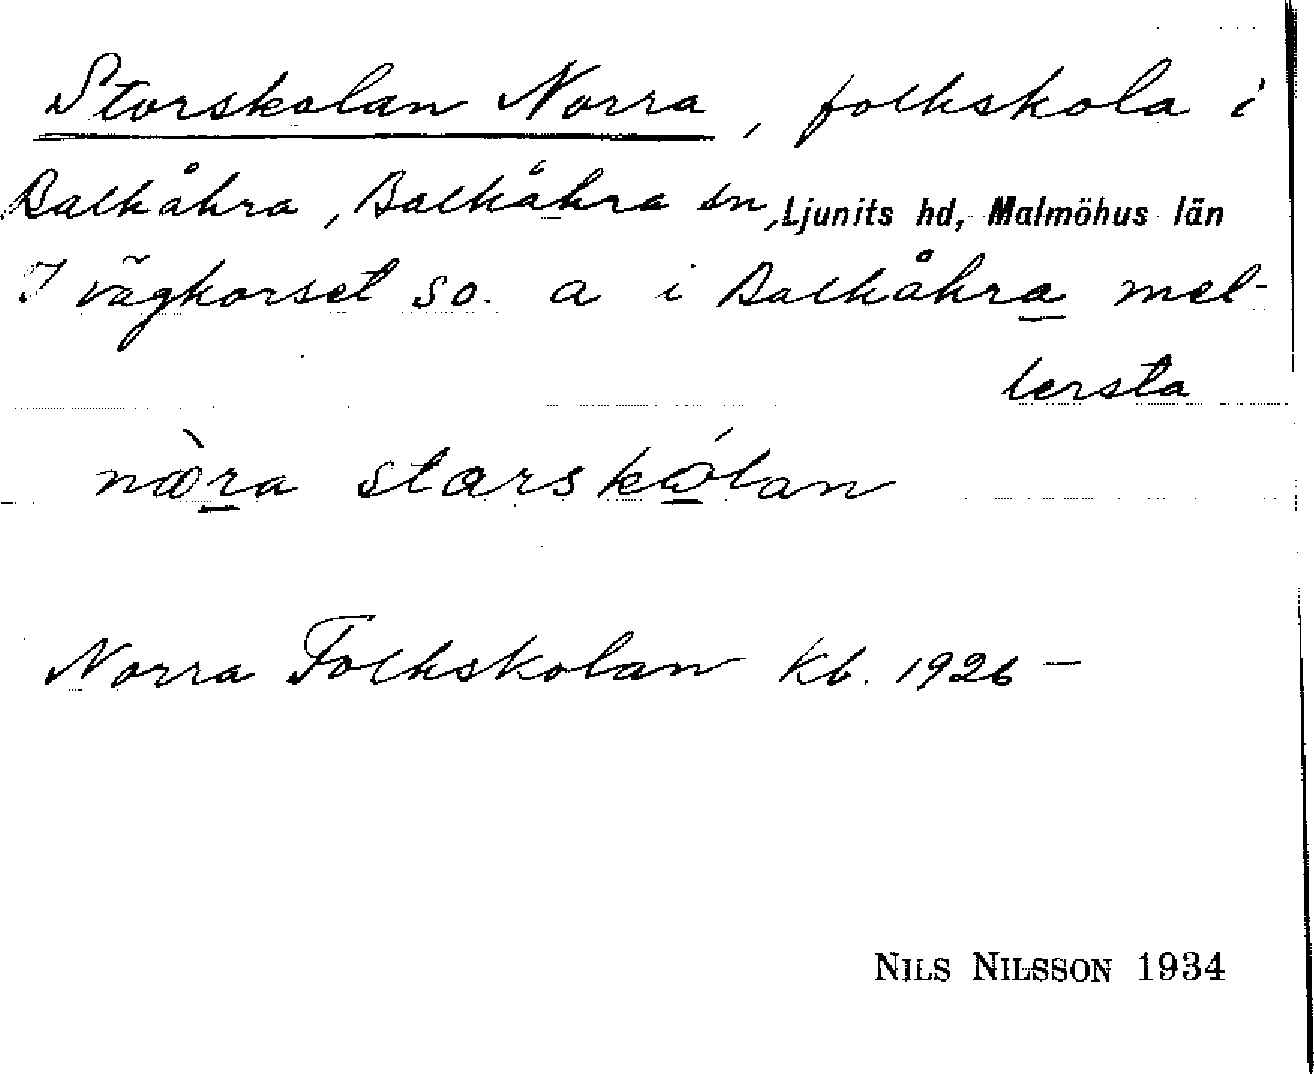 Storskolan Norra, folkskola i
Balkåkra, Balkåkra sn, Ljunits hd, Malmöhus län
I vägkorset so. a i Balkåkra mel-
lersta
nœ̀ra starskólan
Norra Folkskolan Kb. 1926 –
NILS NILSSON 1934